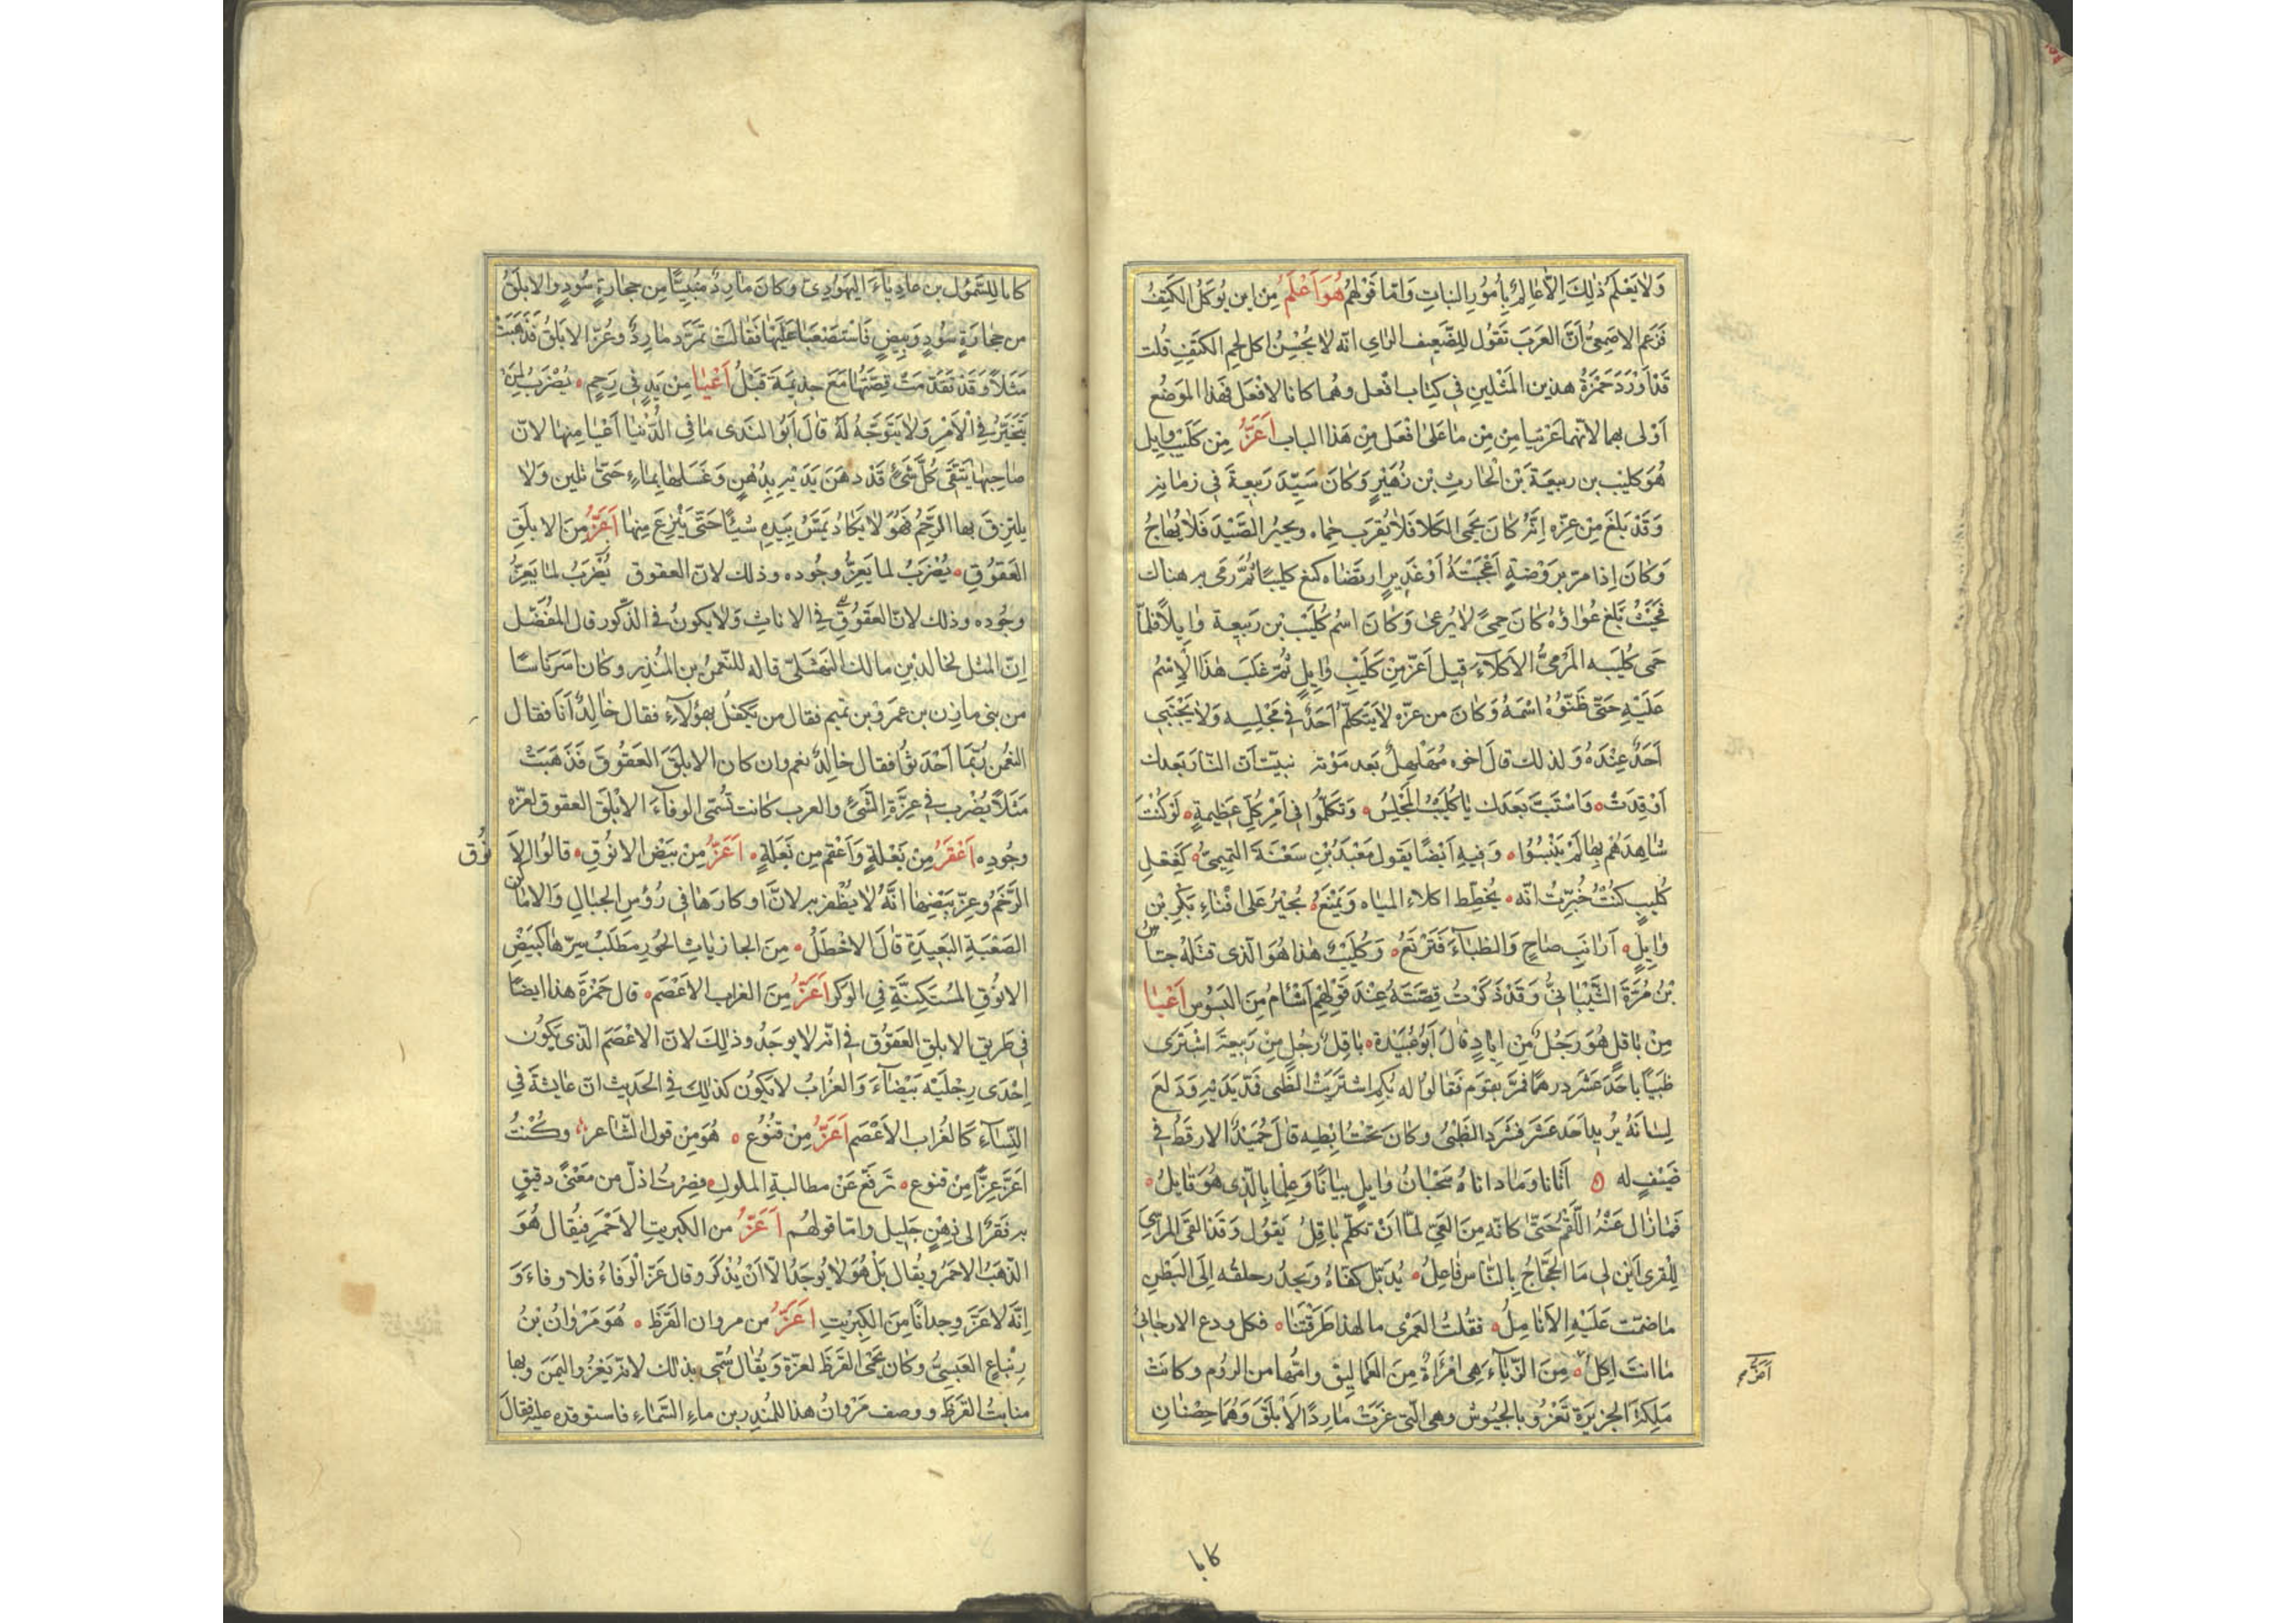 وَلَا يَعْلَمُ ذٰلِكَ اِلَّا عَالِمٌ بِاُمُورِ النباتِ وَامّا قَوْلهُمْ هُوَ اَعْلَمُ مِن اين يُوكَلُ الكَتِفُ
فَزَعَم الاصمعىُّ اَنَّ العَرَبَ تَقُول لِلضَّعِيف الرَاىِ انّه لا يُحْسِنُ اكل لحم الكتِفِ قُلت
قَدْ اَوْرَدَ حَمْزَةُ هذين المَثَلين فِى كِتٰاب افْعل وهُما كانا لا فْعَل فَهَذا الموضع
اَوْلى بهما لانّهما عَرّيا مِن مِن مَا عَلى افْعَل مِن هَذَا الباب اَعَزُّ مِن كُلَيْب وايل
هُوَ كُليْب بن ربيعَة بْن الحَارِث بْن زُهَيْرٍ وَكٰانَ سَيِّدَ رَبيعة فِى زمانه
وَقَدْ بَلَغَ مِنْ عِزّه اِنّهُ كانَ يَحْمى الكلا فَلا يُقرَب حِماه ويجيرُ الصَّيْدَ فَلا يُهاجُ
وَكانَ اِذا مرّ بِرَوْضةٍ اَعْجَبَتْهُ اَوْ غَديرٍ ارتضاه كنع كليبًا ثُمّ رَمَى به هناك
فحَيْثُ بَلَغ عُواؤهُ كانَ حِمىً لا يُرعىٰ وَكانَ اسْمُ كُلَيْب بْن رَبيعة وايلاً فلمّا
حَمى كُلَيبه المَرْمِىُّ الاكلآءَ قيل اعَزّ مِنْ كُلَيْبِ وٰايلٍ ثُمّ غَلَبَ هٰذَا الاِسْمُ
عَلَيْهِ حَتّى ظَنّوُهُ اسْمَهُ وَكانَ من عزّه لا يَتَكلَّمُ اَحَدٌ فِى مَجْلِسِه وَلا يَحْتَبى
اَحَدٌ عِنْدَهُ وَلذلك قالَ اخوه مُهَلْهِلٌ بَعد مَوْته نبيّت انّ النّار بَعدك
اوْقِدَتْ ه وَاسْتَبَّ بَعَدَك يا كُلَيْبُ المجْلِسُ ه وَتكلّموُا فِى اَمْرِ كُلِّ عَظيمةٍ ه لَوْ كُنْتَ
شاهِدَهُمْ بِها لَمْ يَنْبِسُوا ه وَفيهِ اَيْضًا يَقول مَعْبَدُ بْن سَعْنَة التميمىُّ ه كَفِعْلِ
كُليبٍ كُنْتُ خُبِّرتُ انّه ه يُخطِّط اكلاءَ المياه وَيَمْنَعُ ه يُجيرُ عَلى افْنآءِ بَكْرِ بْن
وٰايلٍ ه اَرٰانبَ ضاحٍ وَالظّبآءَ فَتَرْتَعُ ه وَكُلَيْبٌ هٰذا هُوَ الّذى قتلهُ جسّاس
بْنُ مُرَّةَ الشَّيْبانىُّ وَقَدْ ذَكَرْتُ قِصّتَهُ عِنْدَ قَوْلِهِمْ اَشْأمُ مِنَ البَسُوس اَعْيٰا
مِنْ باقلٍ هُوَ رَجُلٌ مِنْ اِيادٍ قالَ اَبُو عُبَيْدة ه باقِلٌ رَجُل مِنْ رَبيعة اشْتَرى
ظبيًا باحَدَ عَشَر درهمًا فَمرّ بقوم فَقالوا له بكم اشتَرَيْتَ الظَّبى فَمدّ يَدَيْهِ وَدَلعَ
لِسانَهُ يُريد احد عَشَر فشَرَدَ الظَّبْىُ وكانَ تَحْتَ ابْطِه قالَ حُميْدٌ الارقطُ فِى
ضَيْفٍ له ه اتٰانا وَما داناهُ سَحْبانُ وايلٍ بيانًا وَعِلْمًا بِالّذى هُوَ قٰايلُ ه
فَمازال عَنْهُ اللَّقْمُ حَتّى كانّه مِنَ العِىِّ لمّا اَنْ تكلّم باقِلُ يَقوُل وَقَد القىٰ المراسِىَ
لِلْقرى ابن لى مَا الحَجّاجُ بِالنّاسِ فاعِلُ ه يُدَبّل كفّاهُ ويحدُر حلقُه اِلَى البَطْنِ
ماضمّت عَلَيْهِ الاَنامِلُ ه فقُلتُ لعَمْرى ما لهذا طَرَقْتَنا ه فكل ودع الارجافَ
ما انتَ اٰكِلُ ه مِنَ الزّبّآءَ هِى امْرَأةٌ مِنَ العَماليق وامُّها من الرُوم وكانَتْ
مَلِكةَ الجزيرَةِ تَغْزُو بالجُيُوش وهى الّتى غزَتْ مارِدًا الاَبْلَقَ وَهُمَا حِصْنانِ
اَعَزُّ
كابا
كابا لِلسَّمَوْل بن عادِيآءَ اليَهُودِى وَكانَ مارِدٌ مَبنِيًّا مِن حِجارَةٍ سُودٍ والابلَقُ
من حِجٰارَةٍ سُودٍ وَبيضٍ فَاسْتصعَبا عَلَيْها فَقالَتْ تَمَرّدَ مٰارِدٌ وعَزّ الابلَقُ فَذَهَبَتْ
مَثَلاً وَقَدْ تَقَدّمَتْ قِصّتُها مَعَ جذيمَة قَبْلُ اَعْيٰا مِن يَدٍ فِى رَحِمٍ ه يُضْرَبُ لمَنْ
يَتحَيَّرُ فِى الْاَمْرِ وَلا يَتوَجّهُ لَهُ قالَ اَبُو النّدى ما فِى الدُّنْيٰا اَعْيا مِنها لانّ
صاحِبَها يَتَّقى كُلَّ شَىْءٍ قَدْ دهَنَ يَدَيْهِ بِدُهْنٍ وَغَسَلهٰا بِماءٍ حَتّىٰ تلين وَلا
يلتزِقَ بها الرَحِمُ فَهُو لا يَكادُ يَمَسُّ بِيَدِه شيْئًا حَتّى يَفْرغَ مِنها اَعَزُّ مِنَ الابلَقِ
العَقوُقِ ه يُضْرَبُ لما يَعِزُّ وجُوده وذلك لانّ العقوق يُضرَبُ لما يَعِزُّ
وجُوده وذلك لانّ العَقوُق فِى الاناثِ وَلا يكونُ فى الذّكور قال المفَضّل
اِنّ المثل لخالد بْن مالك النّهْشَلىّ قاله للنّعمٰن بن المنذِر وكان اسَرَ ناسًا
من بنى مازِن بن عمرو بن تميم فقال من يَكفلُ بهؤلآءِ فقال خالدٌ اَنَا فقال
النعمٰن رُبّمَا اَحْدَثوُا فقال خالدٌ نعم وان كان الابلَقَ العَقُوقَ فَذَهَبَتْ
مَثَلاً يُضْرب فِى عِزَّةِ الشَّىْءِ والعرب كانت تُسمّى الوفآءَ الابْلَق العقوق لعزّه
وجُودِه اَعْقَرُ مِنْ بَغْلةٍ وَاَعْقم مِن بَغَلةٍ ه اَعَزُّ مِنْ بَيْضِ الانوُقِ ه قالُوا الاَ
نُوق
الرّخَمُ وعِزّ بَيْضِها انّهُ لا يُظْفر به لانّ اوكارَها فِى رُؤسِ الجبٰالِ وَالاماكن
الصّعْبَةِ البَعيدَةِ قالَ الاخْطَلُ ه مِنَ الجازِياتِ الحُورِ مَطْلَبُ سِرّها كَبيْضِ
الانوُقِ المُسْتَكِنَّةِ فِى الوَكرِ اَعَزُّ مِنَ الغراب الاعْصَمِ ه قال حَمْزَة هذا ايضًا
فى طريق الابلقِ العَقوُق فِى انّه لا يوجَدُ وذٰلِكَ لانّ الاعْصَمَ الّذى يَكوُن
اِحْدَى رِجْلَيْه بَيْضآءَ وَالغُرابُ لا يَكوُن كَذٰلِكَ فِى الحَديث انّ عٰايشةَ فِى
النّسآءِ كَالغُراب الاَعْصَم اَعَزُّ مِن قنوُعٍ ه هُوَ مِن قول الشّاعر وكُنْتُ
اعَزّ عِزًّا مِنْ قنوع ه تَرفّعَ عَنْ مطالبةِ الملوكِ ه فصِرْتُ اذلّ من مَعْنىً دقيقٍ
به فَقرٌ الى ذِهْنٍ جَليل وامّا قولهُم اَعَزُّ من الكبريتِ الاَحْمَرِ فيُقال هُوَ
الذّهَبُ الاحمَرُ ويُقال بَلْ هُوَ لا يُوجَدُ الاّ اَنْ يُذْكَر وقال عَزّ الْوَفاءُ فلا وفاءَ وَ
اِنّهُ لاعَزّ وِجدانًا مِنَ الكِبْرِيتِ اَعَزُّ من مروان القَرَظِ ه هُوَ مَرْوانُ بْنُ
زِنْباعٍ العَبسِىُّ وكان يَحْمى القَرَظَ لعزّة وَيُقال سُمّى بذلك لانّه يَغزُو اليَمنَ وبها
منابتُ القَرَظِ ووصف مَرْوانُ هذا للمنذِر بن ماءِ السّماءِ فاستوفده عليه فقالَ